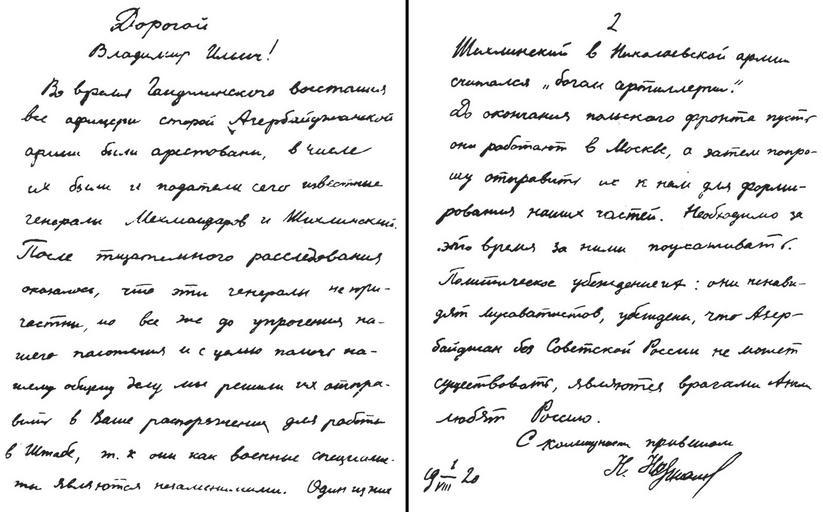 Дорогой
Владимир Ильич!
Во время Гандминского восстания
все офицеры старой Азербайджанской
армии были арестованы, в числе
их были и податели сего известные
генералы Мехмандаров и Шихлинский.
После тщательного расследования
оказалось, что эти генералы не при-
частны, но все же до упрочения на-
шего положения и с целью помочь на-
шему общему делу мы решили их отпра-
вить в Ваше распоряжения для работы
в Штабе, т.к они как военные специали-
ты являются незаменимыми. Один из них
2
Шихлинский в Николаевской армии
считался „богом артиллерии“.
До окончания польского фронта пусть
они работают в Москве, а затем попро-
шу отправить их к нам для форми-
рования наших частей. Необходимо за
это время за ними поухаживать.
Политическое убеждение их: они ненави-
дят мусаватистов, убеждены, что Азер-
байджан без Советской России не может
существовать, являются врагами Англ
любят Россию.
С коммунист приветом
Н. Нариманов
1
VIII 20